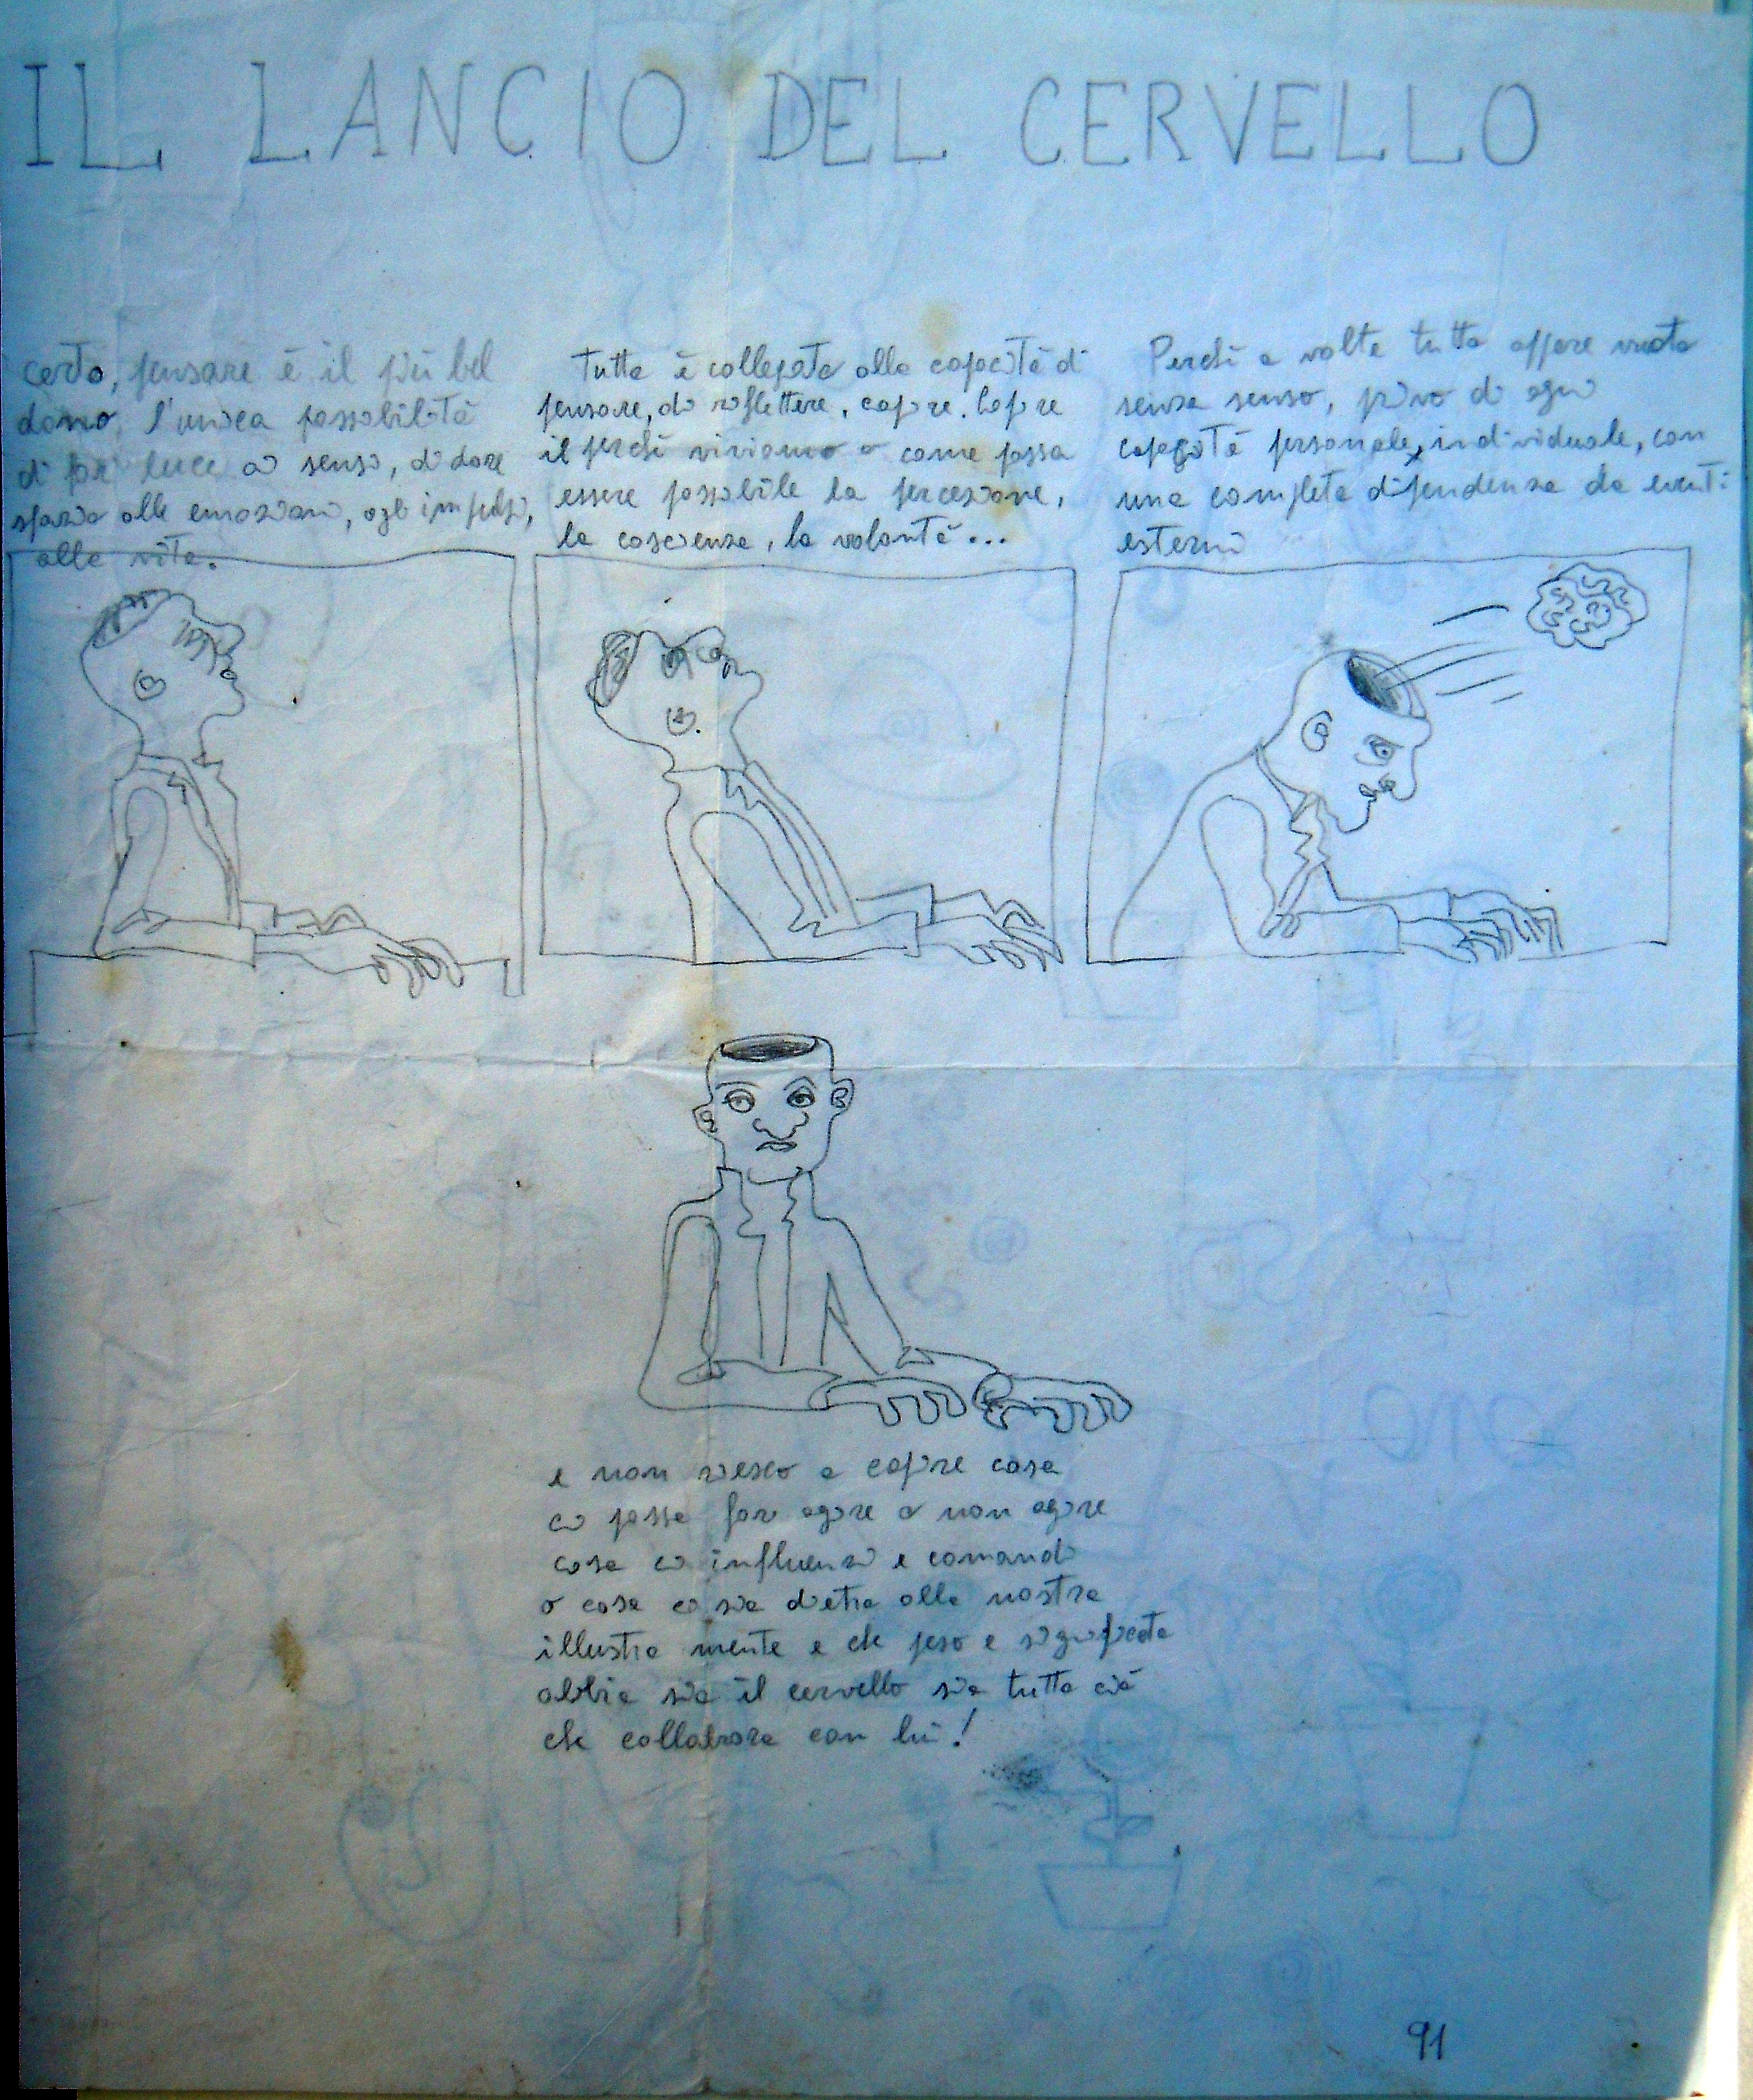 IL LANCIO DEL CERVELLO
certo, pensare è il più bel
dono, l'unica possibilità
di far luce ai sensi, di dare
spazio alle emozioni, agli impulsi,
alla vita.
Tutto è collegato alla capacità di
pensare, di riflettere, capire. Capire
il perché viviamo o come possa
essere possibile la percezione,
la coscienza, la volontà...
Perché a volte tutto appare vuoto
senza senso, privo di ogni
capacità personale, individuale, con
una completa dipendenza da eventi
esterni
e non riesco a capire cosa
ci possa far agire o non agire
cosa ci influenzi e comandi
o cosa ci sia dietro alla nostra
illustre mente e che peso e significato
abbia sia il cervello sia tutto ciò
che collabora con lui!
91